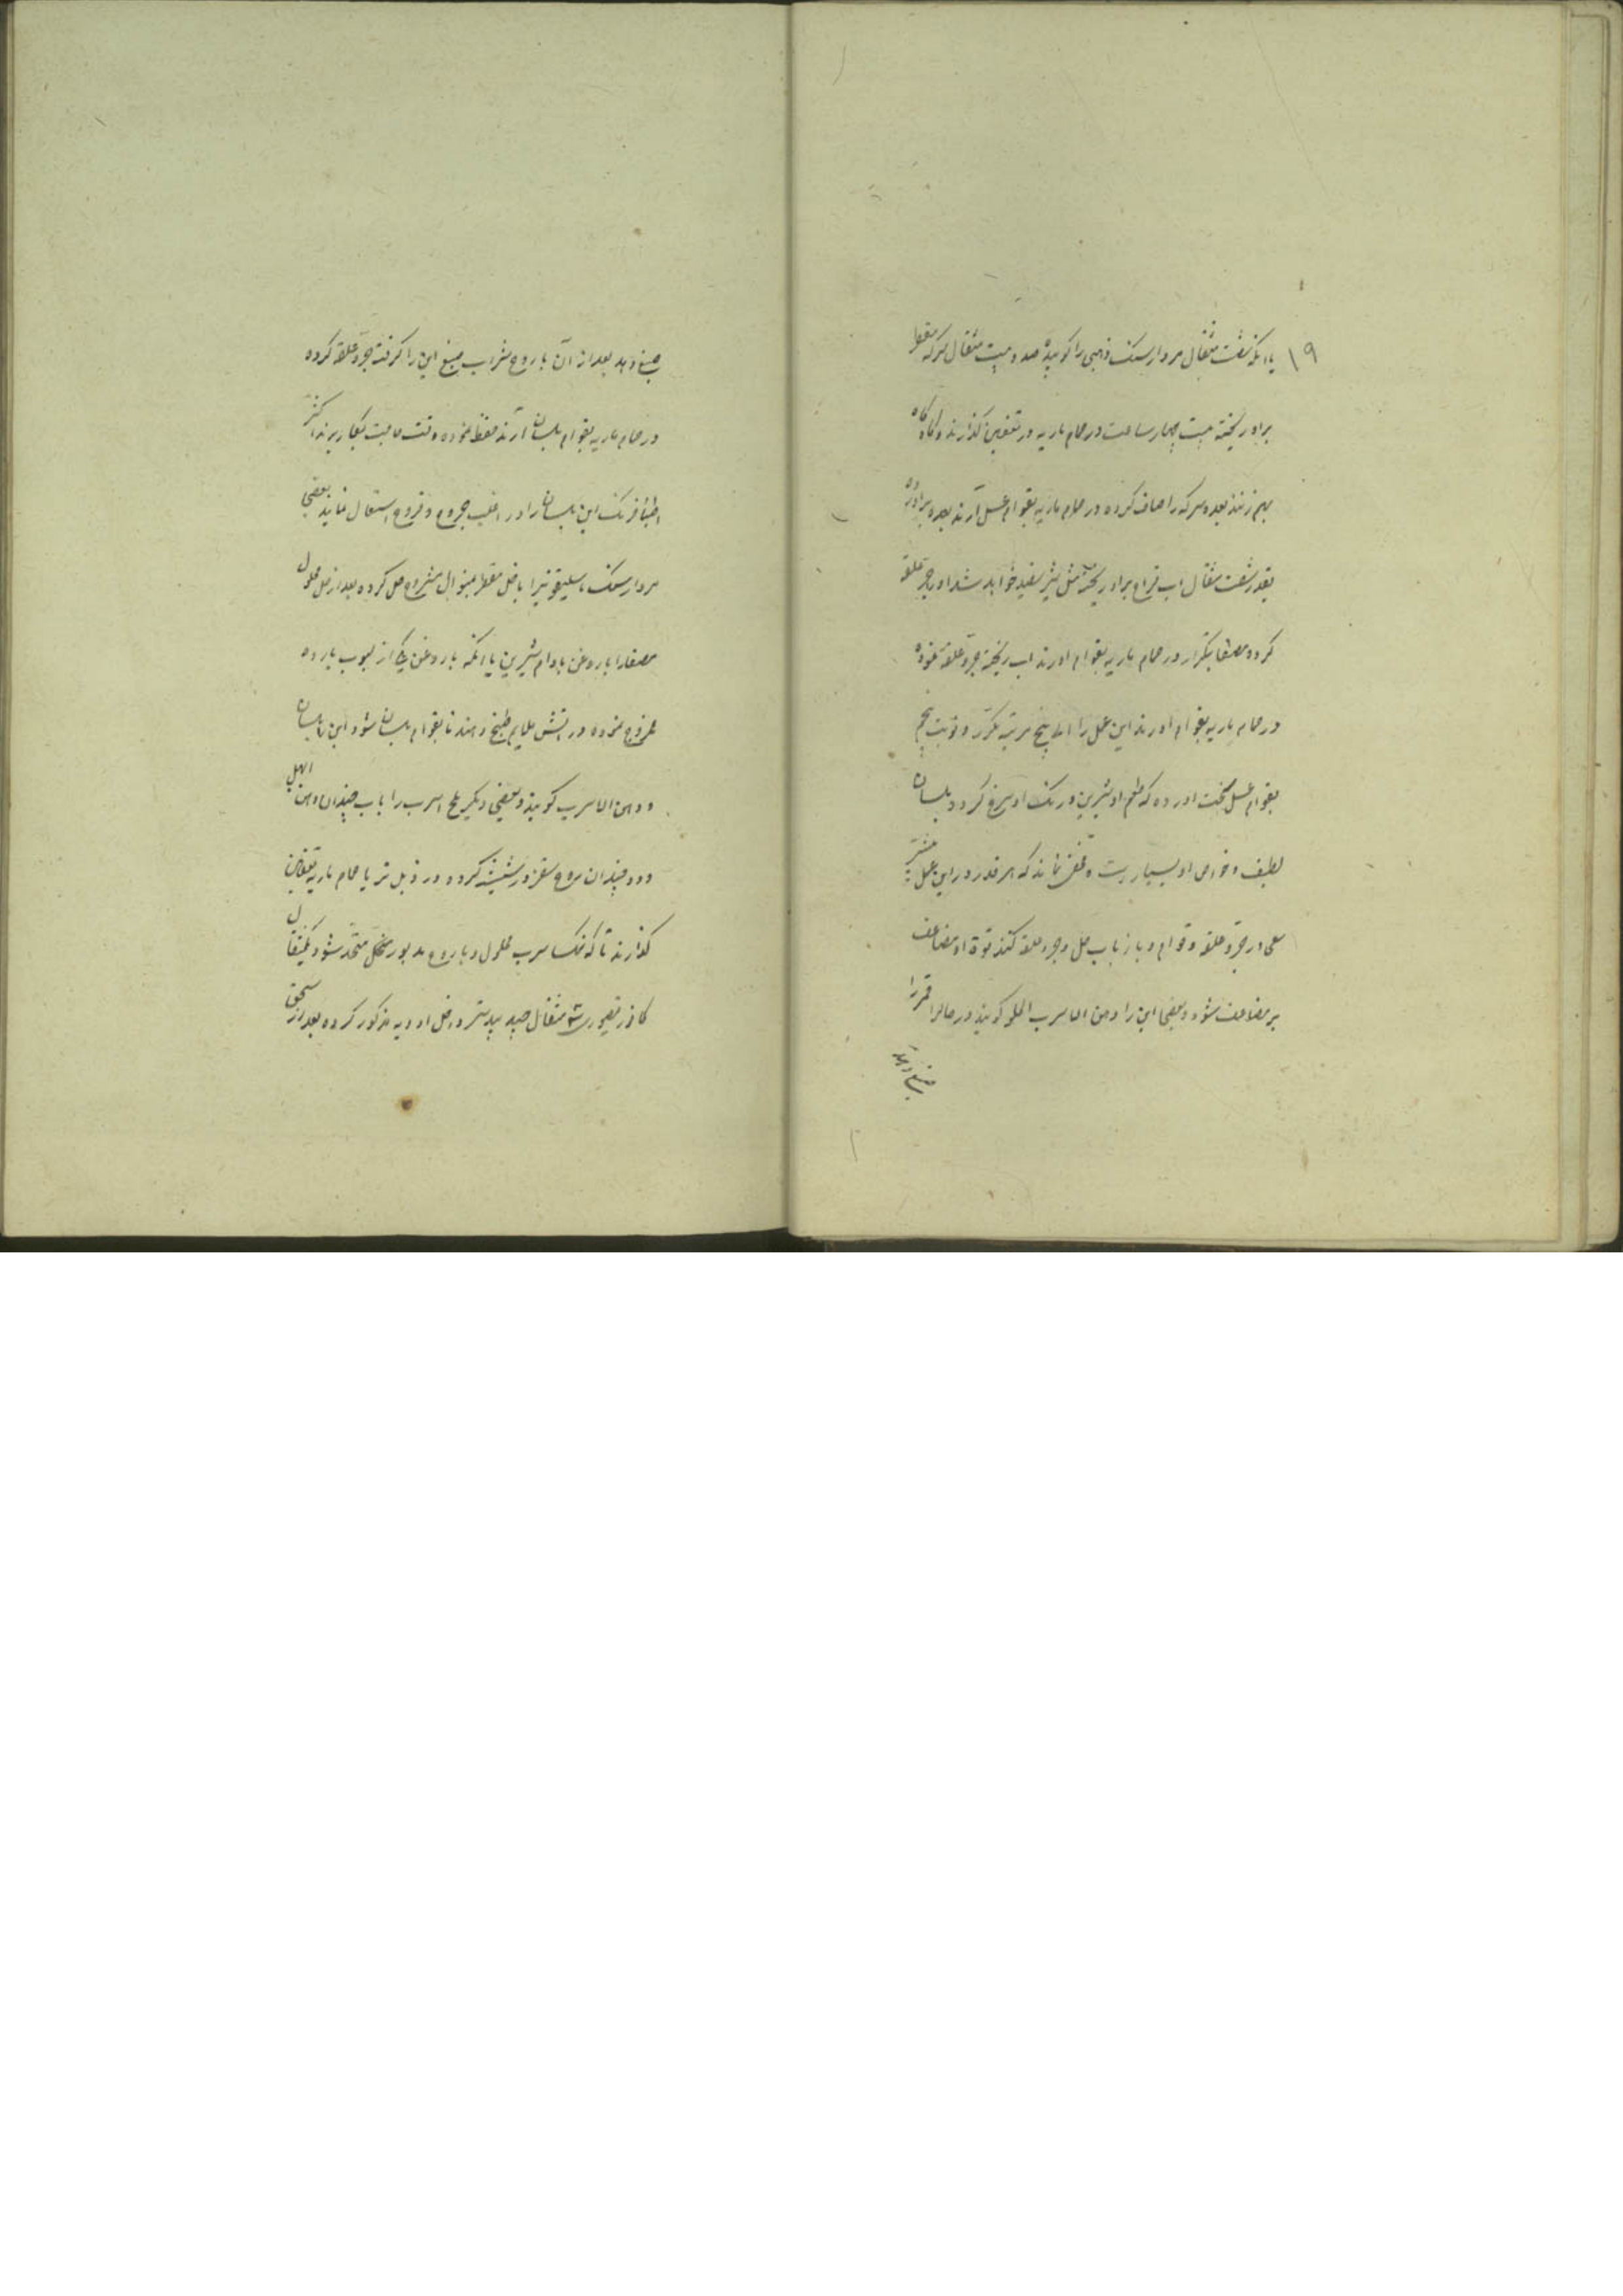 ۱۹ یا انکه شصت مثقال مردارسنک ذهبی را کوبیده صد و بیست مثقال سرکه مقطر
براو ریخته بیست چهار ساعت در حمام ماریه در تعفین کذارند و کاه کاه
بهم زنند بعده سرکه را صاف کرده در حمام ماریه بقوام عسل آرند بعده براو
بقدر شصت مثقال اب قراح براو ریخته مثل شیر سفید خواهد شد او را جر علقه
کرده مصفا بتکرار در حمام ماریه بقوام اورند اب ریخته جر و علقه نموده
در حمام ماریه بقوام اورند این عمل را الی پنج مرتبه مکرر و نوبت پنجم
بقوام عسل سخت اورده که طعم او شیرین و رنک او سرخ کردد بلسان
لطیف و خواص او بسیار است و مخفی نماند که هر قدر در این عمل بیشتر
سعی در جر و علقه و قوام و باز باب حل و جر و علقه کنند قوة او مضاعف
بر مضاعف شود و بعضی این را دهن الاسرب الحلو کویند در حال قمر را
صبغ دهد
صبغ دهد بعد از آن با روح شراب صبغ این را کرفته جر و علقه کرده
در حمام ماریه بقوام بلسان آرند حفظ نموده وقت حاجت بکار برند اکثر
اطبا فرنک این بلسان را در اغلب جروح و قروح استعمال نمایند بعضی
مردارسنک یا سلیقون را با خل مقطر بمنوال مشروح حل کرده بعد از حل محلول
مصفا را با روغن بادام شیرین یا انکه با روغن یکی از لبوب بارده
ممزوج نموده در اتش ملایم طبخ دهند تا بقوام بلسان شود این را بلسان
و دهن الاسرب کویند و بعضی دیکر ملح اسرب را باب چندان دهن الهل
و دو چندان روح سقز در شیشه کرده در ذبل تر یا حمام ماریه بتعفین
کذارند تا که نمک اسرب محلول و با روح مذبور منحل متحد شود یکمثقال
کافور قیصوری شش مثقال جند بیدستر داخل ادویه مذکور کرده بعد از سحق